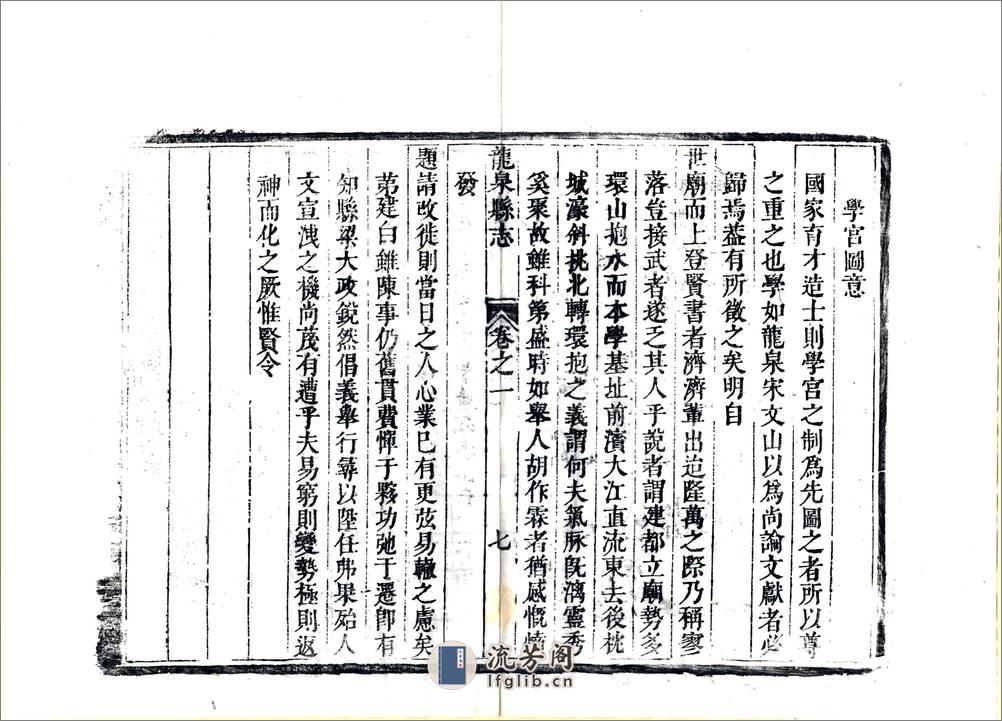 學宮圖意
國家育才造士則學宮之制爲先圖之者所以尊
之重之也學如龍泉宋文山以爲尚論文獻者必
歸焉葢有所徵之矣明自
世廟而上登賢書者濟濟軰出迨隆萬之際乃稱寥
落豈接武者遂乏其人乎說者謂建都立廟勢多
環山抱水而本學基址前濱大江直流東去後枕
城濠斜挑北轉環抱之義謂何夫氣脉旣漓靈秀
奚聚故雖科第盛時如舉人胡作霖者猶感慨憤
龍泉縣志
卷之一
七
發
題請改徙則當日之人心業已有更弦易轍之慮矣
苐建白雖陳事仍舊貫費憚于夥功弛于遷卽有
知縣梁大政銳然倡義舉行尋以陞任弗果殆人
文宣洩之機尚茂有遭乎夫易窮則變勢極則返
神而化之厥惟賢令
流芳阁
lfglib.cn